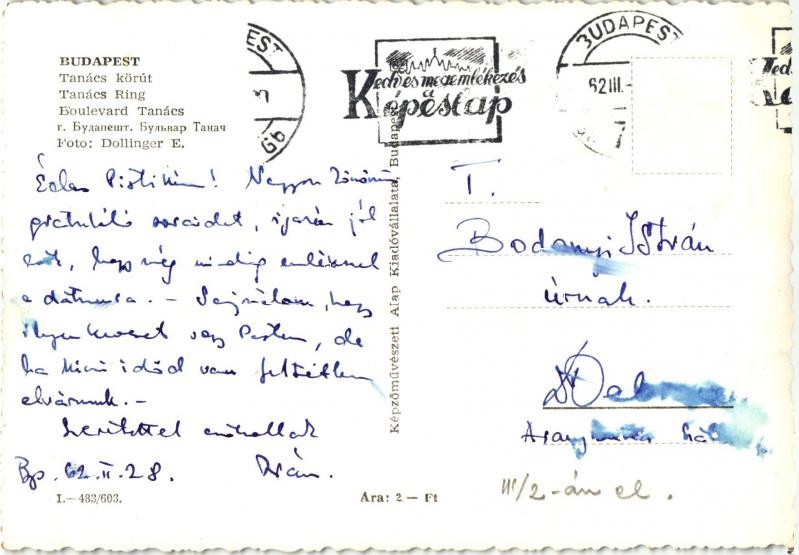 BUDAPEST
Tanács körút
Tanács Ring
Boulevard Tanács
г. Будапешт. Бульвар Танач
Foto: Dollinger E.
Kedves megemlékezés
Képeslap
BUDAPEST
62 III.
Édes Pistikém! Nagyon köszönöm
gratuláló soraidat, igazán jól
esett, hogy még mindig emlékszel
a dátumra. – Sajnálom, hogy
ilyen keveset vagy Pesten, de
ha kicsi időd van feltétlen
elvárunk. –
Szeretettel csókollak
Bp. 62. II. 28.
I.—483/603.
Képzőművészeti Alap Kiadóvállalata, Budapest
Ára: 2.— Ft
T.
István
úrnak.
III/2-án el.